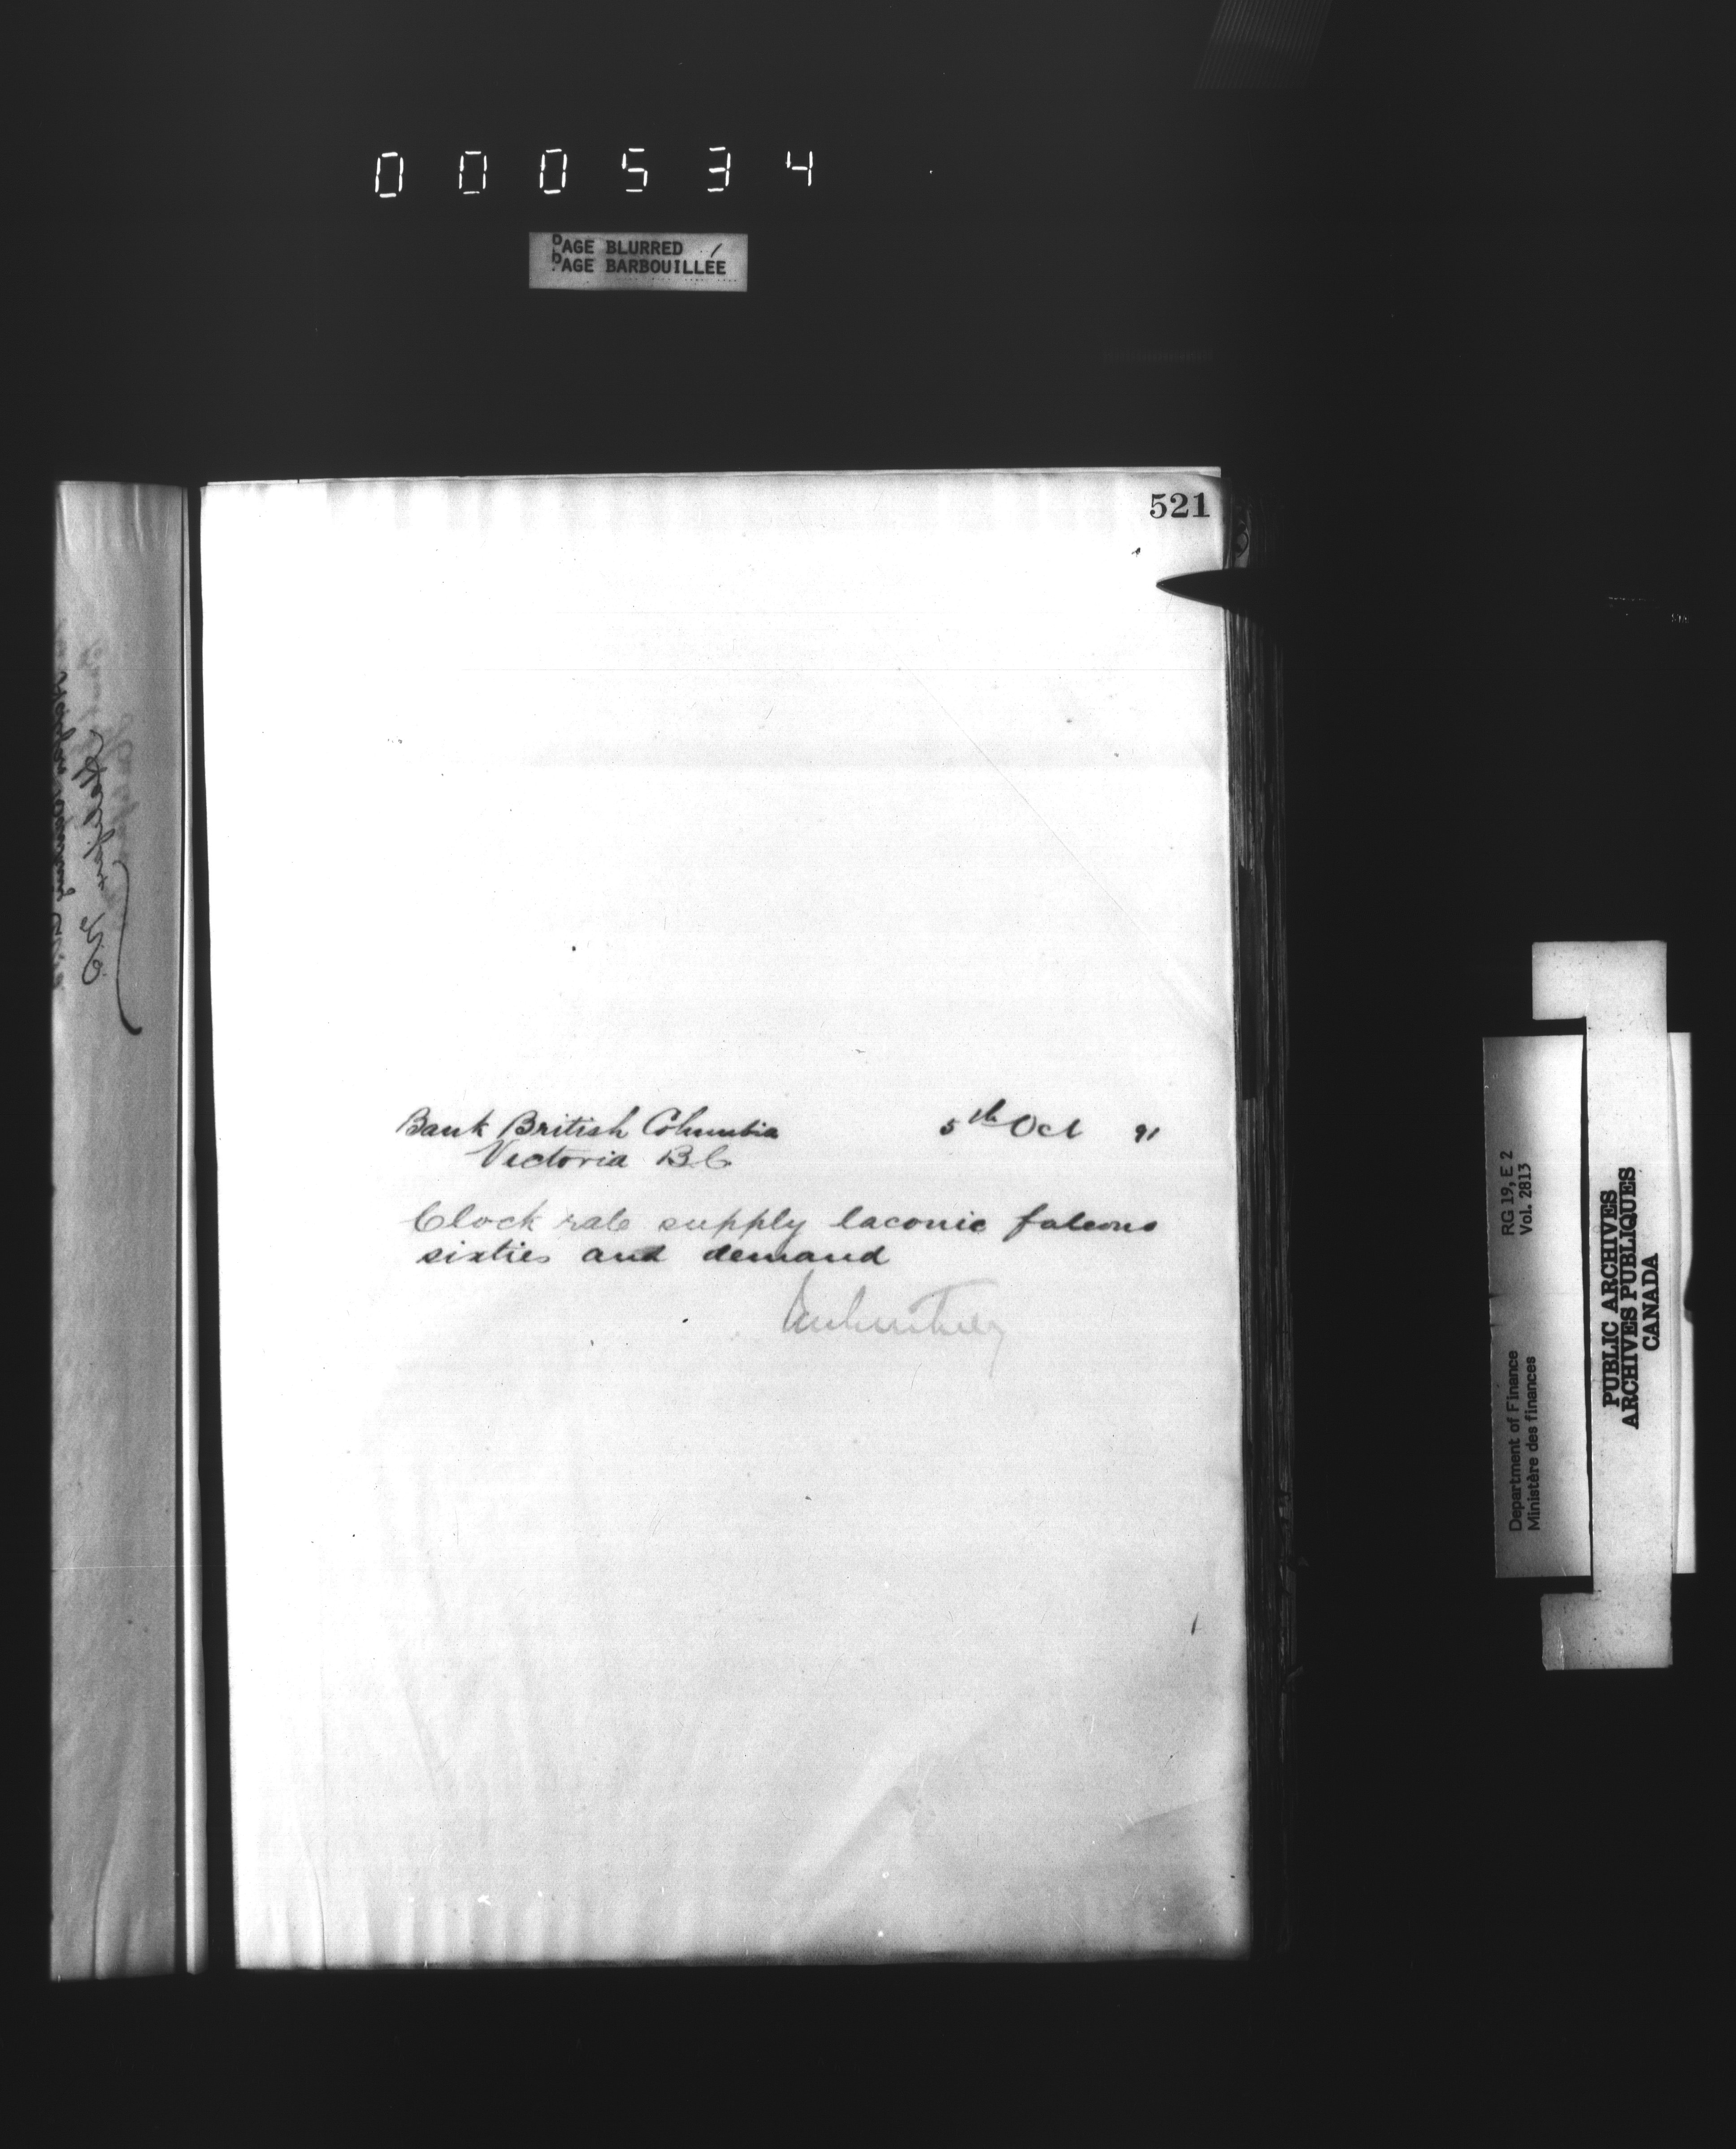 000534
PAGE BLURRED
PAGE BARBOUILLÉE
521
Bank British Columbia 5th Oct 91
Victoria B.C
Clock rate supply laconic falcons
sixties and demand
RG 19, E 2
Vol. 2813
Department of Finance
Ministère des finances
PUBLIC ARCHIVES
ARCHIVES PUBLIQUES
CANADA